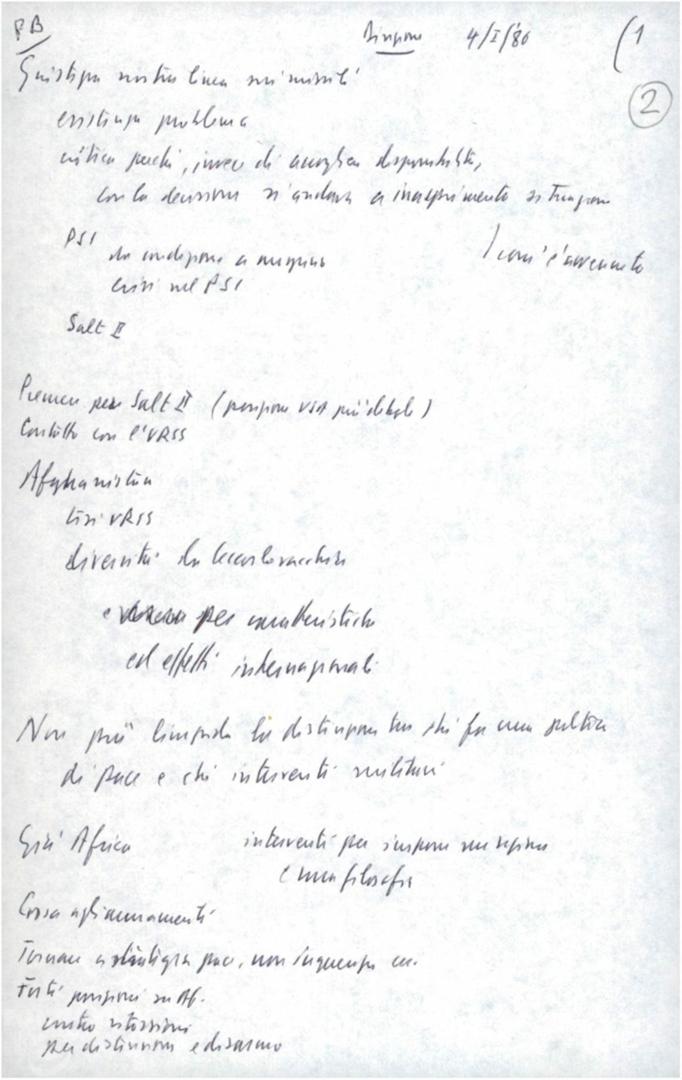 PB
Direzione 4/I/'80 (1
2
Giustezza nostra linea sui missili
esistenza problema
critica perché, invece di accogliere disponibilità,
con la decisione si andava a inasprimento situazione
PSI
com'è avvenuto
da condizione a
crisi nel PSI
Salt II
Premere per Salt II (posizione USA più debole)
Contatto con l'URSS
Afghanistan
tesi URSS
diversità da Cecoslovacchia
per caratteristiche
ed effetti internazionali
Non più limpida la distinzione tra chi fa una politica
di pace e chi interventi militari
Già Africa interventi per imporre un regime
e una filosofia
Corsa agli armamenti
Tornare a strategia pace, non
Forti posizioni su Af.
contro ritorsioni
per distensione e disarmo